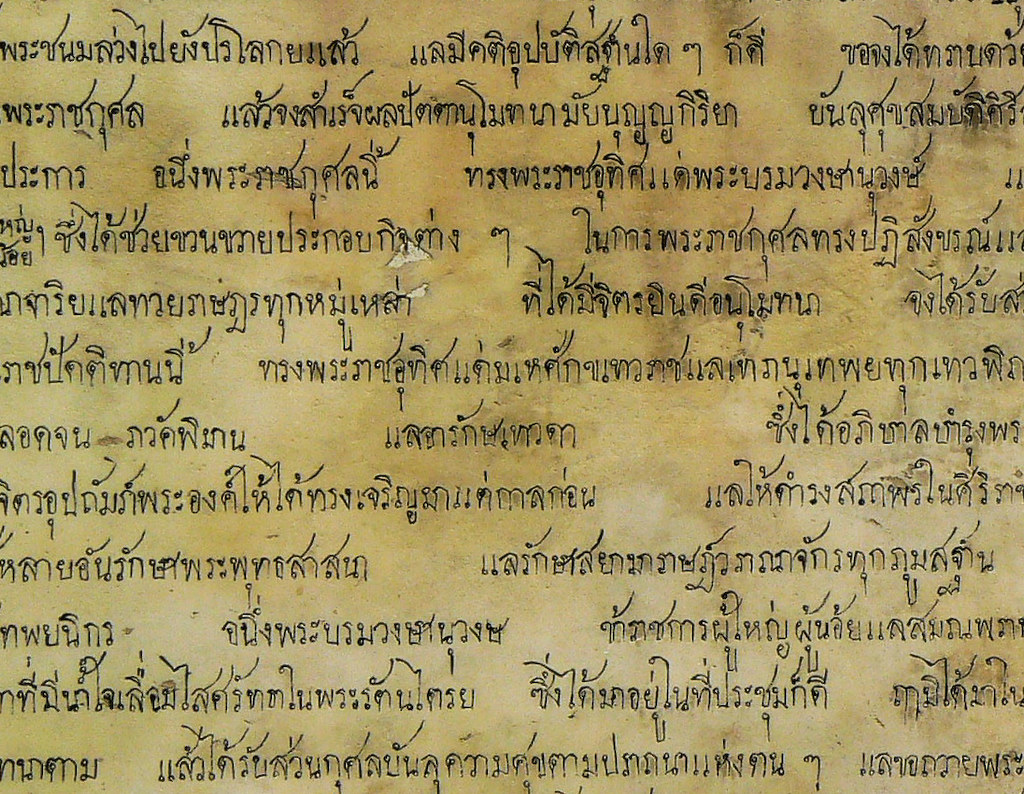 พระชนมล่วงไปยังปรโลกยแล้ว แลมีคติอุปบัติสฐานใด ๆ ก็ดี ขอจงได้ทราบด้วย
พระราชกุศล แล้วจงสำเร็จผลปัตตานุโมทนามัยบุญญกิริยา บันลุศุขสมบัติศิริ
ประการ อนึ่งพระราชกุศลนี้ ทรงพระราชอุทิศแด่พระบรมวงษานุวงษ์ แ
หญ่ น้อย ๆ ซึ่งได้ช่วยขวนขวายประกอบกิจต่าง ๆ ในการพระราชกุศลทรงปฏิสังขรณ์แ
ณาจาริยแลทวยราษฎรทุกหมู่เหล่า ที่ได้มีจิตรยินดีอนุโมทนา จงได้รับส่
ราชปัคติทานนี้ ทรงพระราชอุทิศแด่มเหศักขเทวราชแลเทภนุเทพยทุกเทวพิภ
ลอดจน ภวัคพิมาน แลอารักษเทวดา ซึ่งได้อภิบาลบำรุงพร
จิตรอุปถัมภ์พระองค์ให้ได้ทรงเจริญมาแต่กาลก่อน แลให้ดำรงสภาพรในศิริรา
หลายอันรักษาพระพุทธสาสนา แลรักษาสยามราษฎร์วราณาจักรทุกภูมสฐาน
เทพยนิกร อนึ่งพระบรมวงษานุวงษ ข้าราชการผู้ใหญ่ผู้น้อยแลสมณพรา
ที่มีน้ำใจเลื่อมใสศรัทธาในพระรัตนไตรย ซึ่งได้มาอยู่ในที่ประชุมก็ดี ฤามิได้มาใน
ทนาตาม แล้วได้รับส่วนกุศลบันลุความศุขตามปราถนาแห่งตน ๆ แลขอถวายพระ